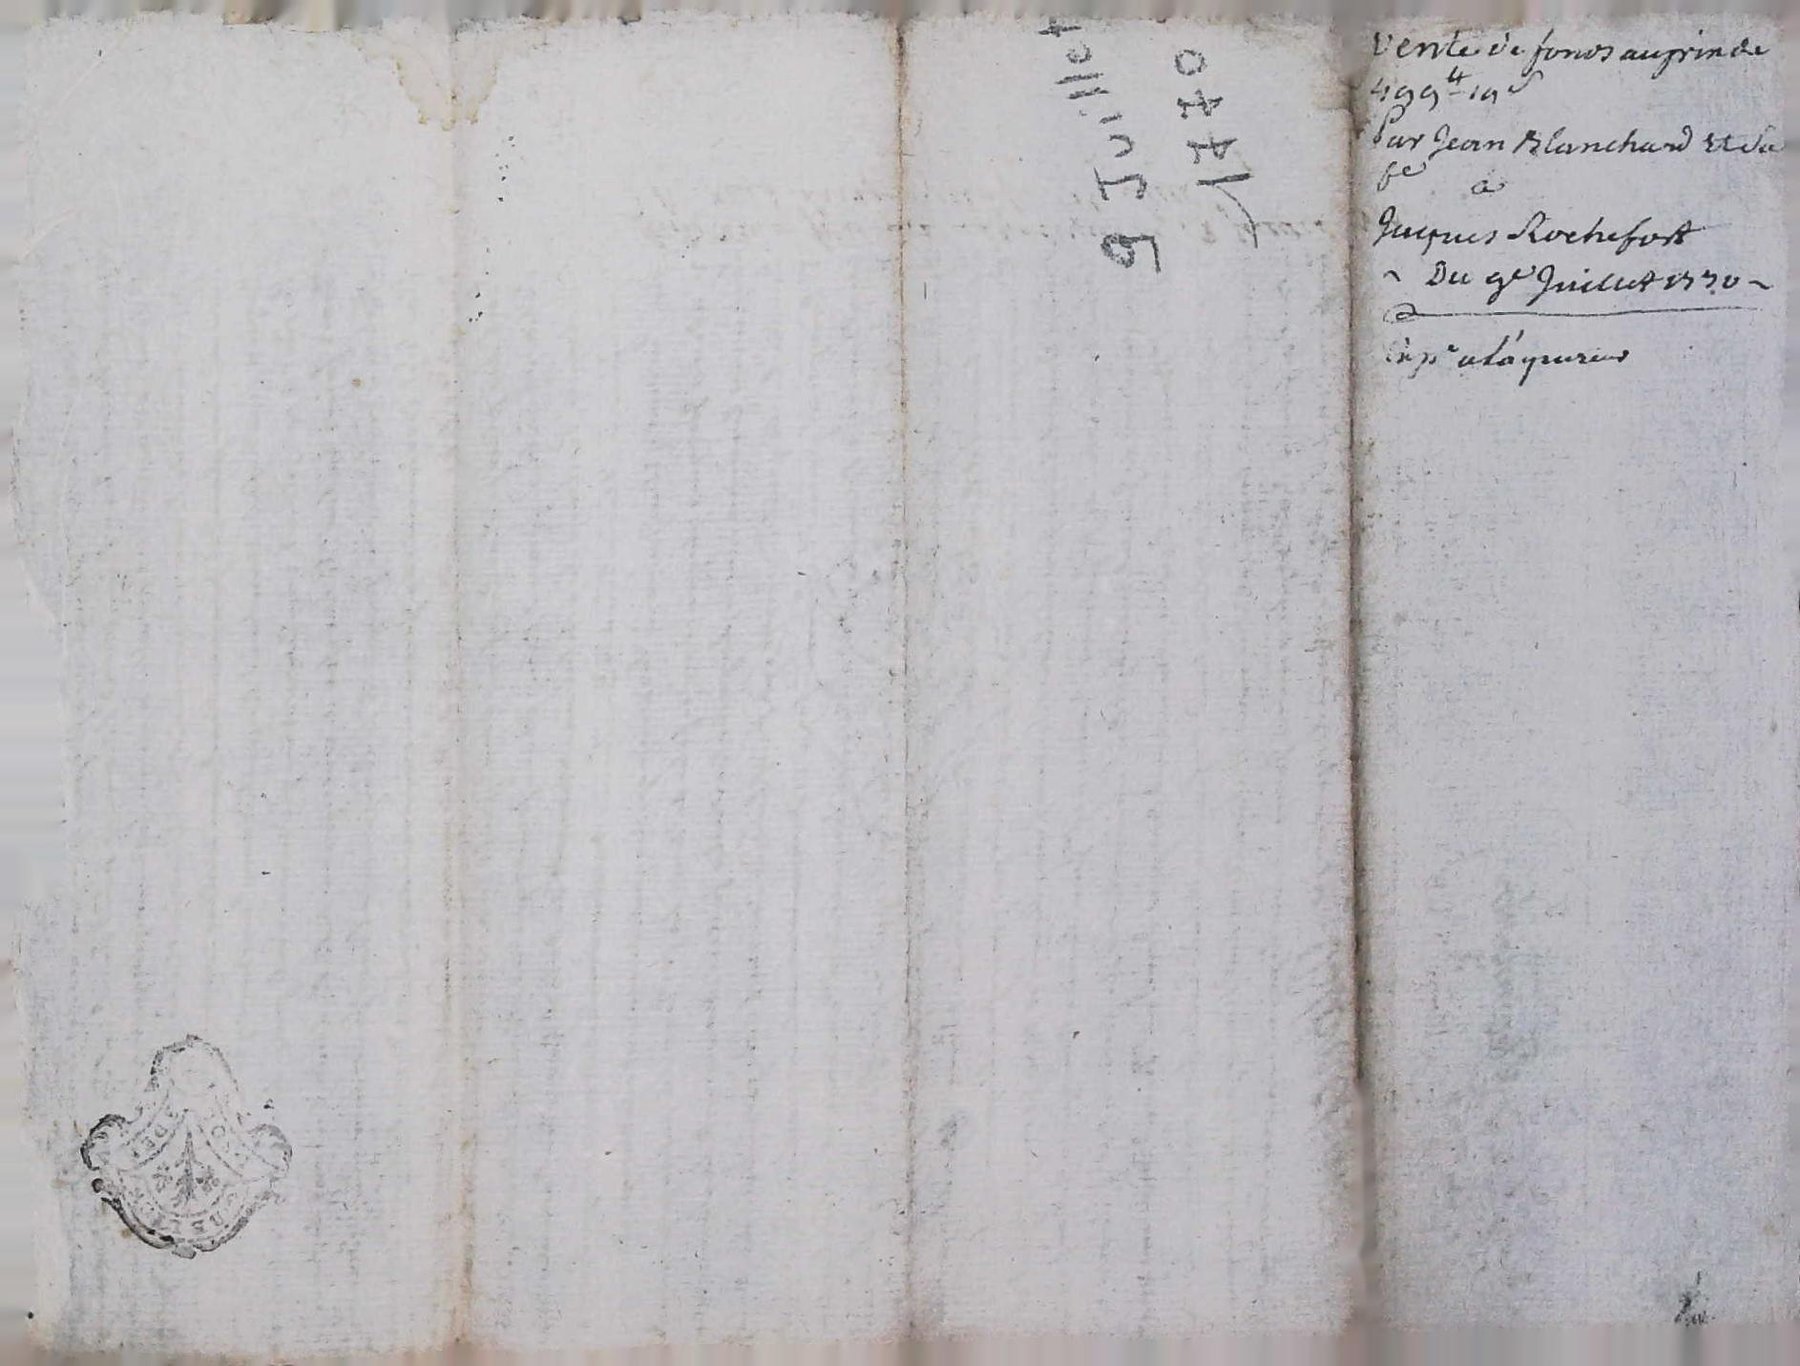 9 Juillet
1770
Vente de fonds au prix de
499 ₶ 19 s
Par Jean Blanchard et sa
fe
a
Jacques Rochefort
~ Du 9e Juillet 1770 ~
a l'aquereur